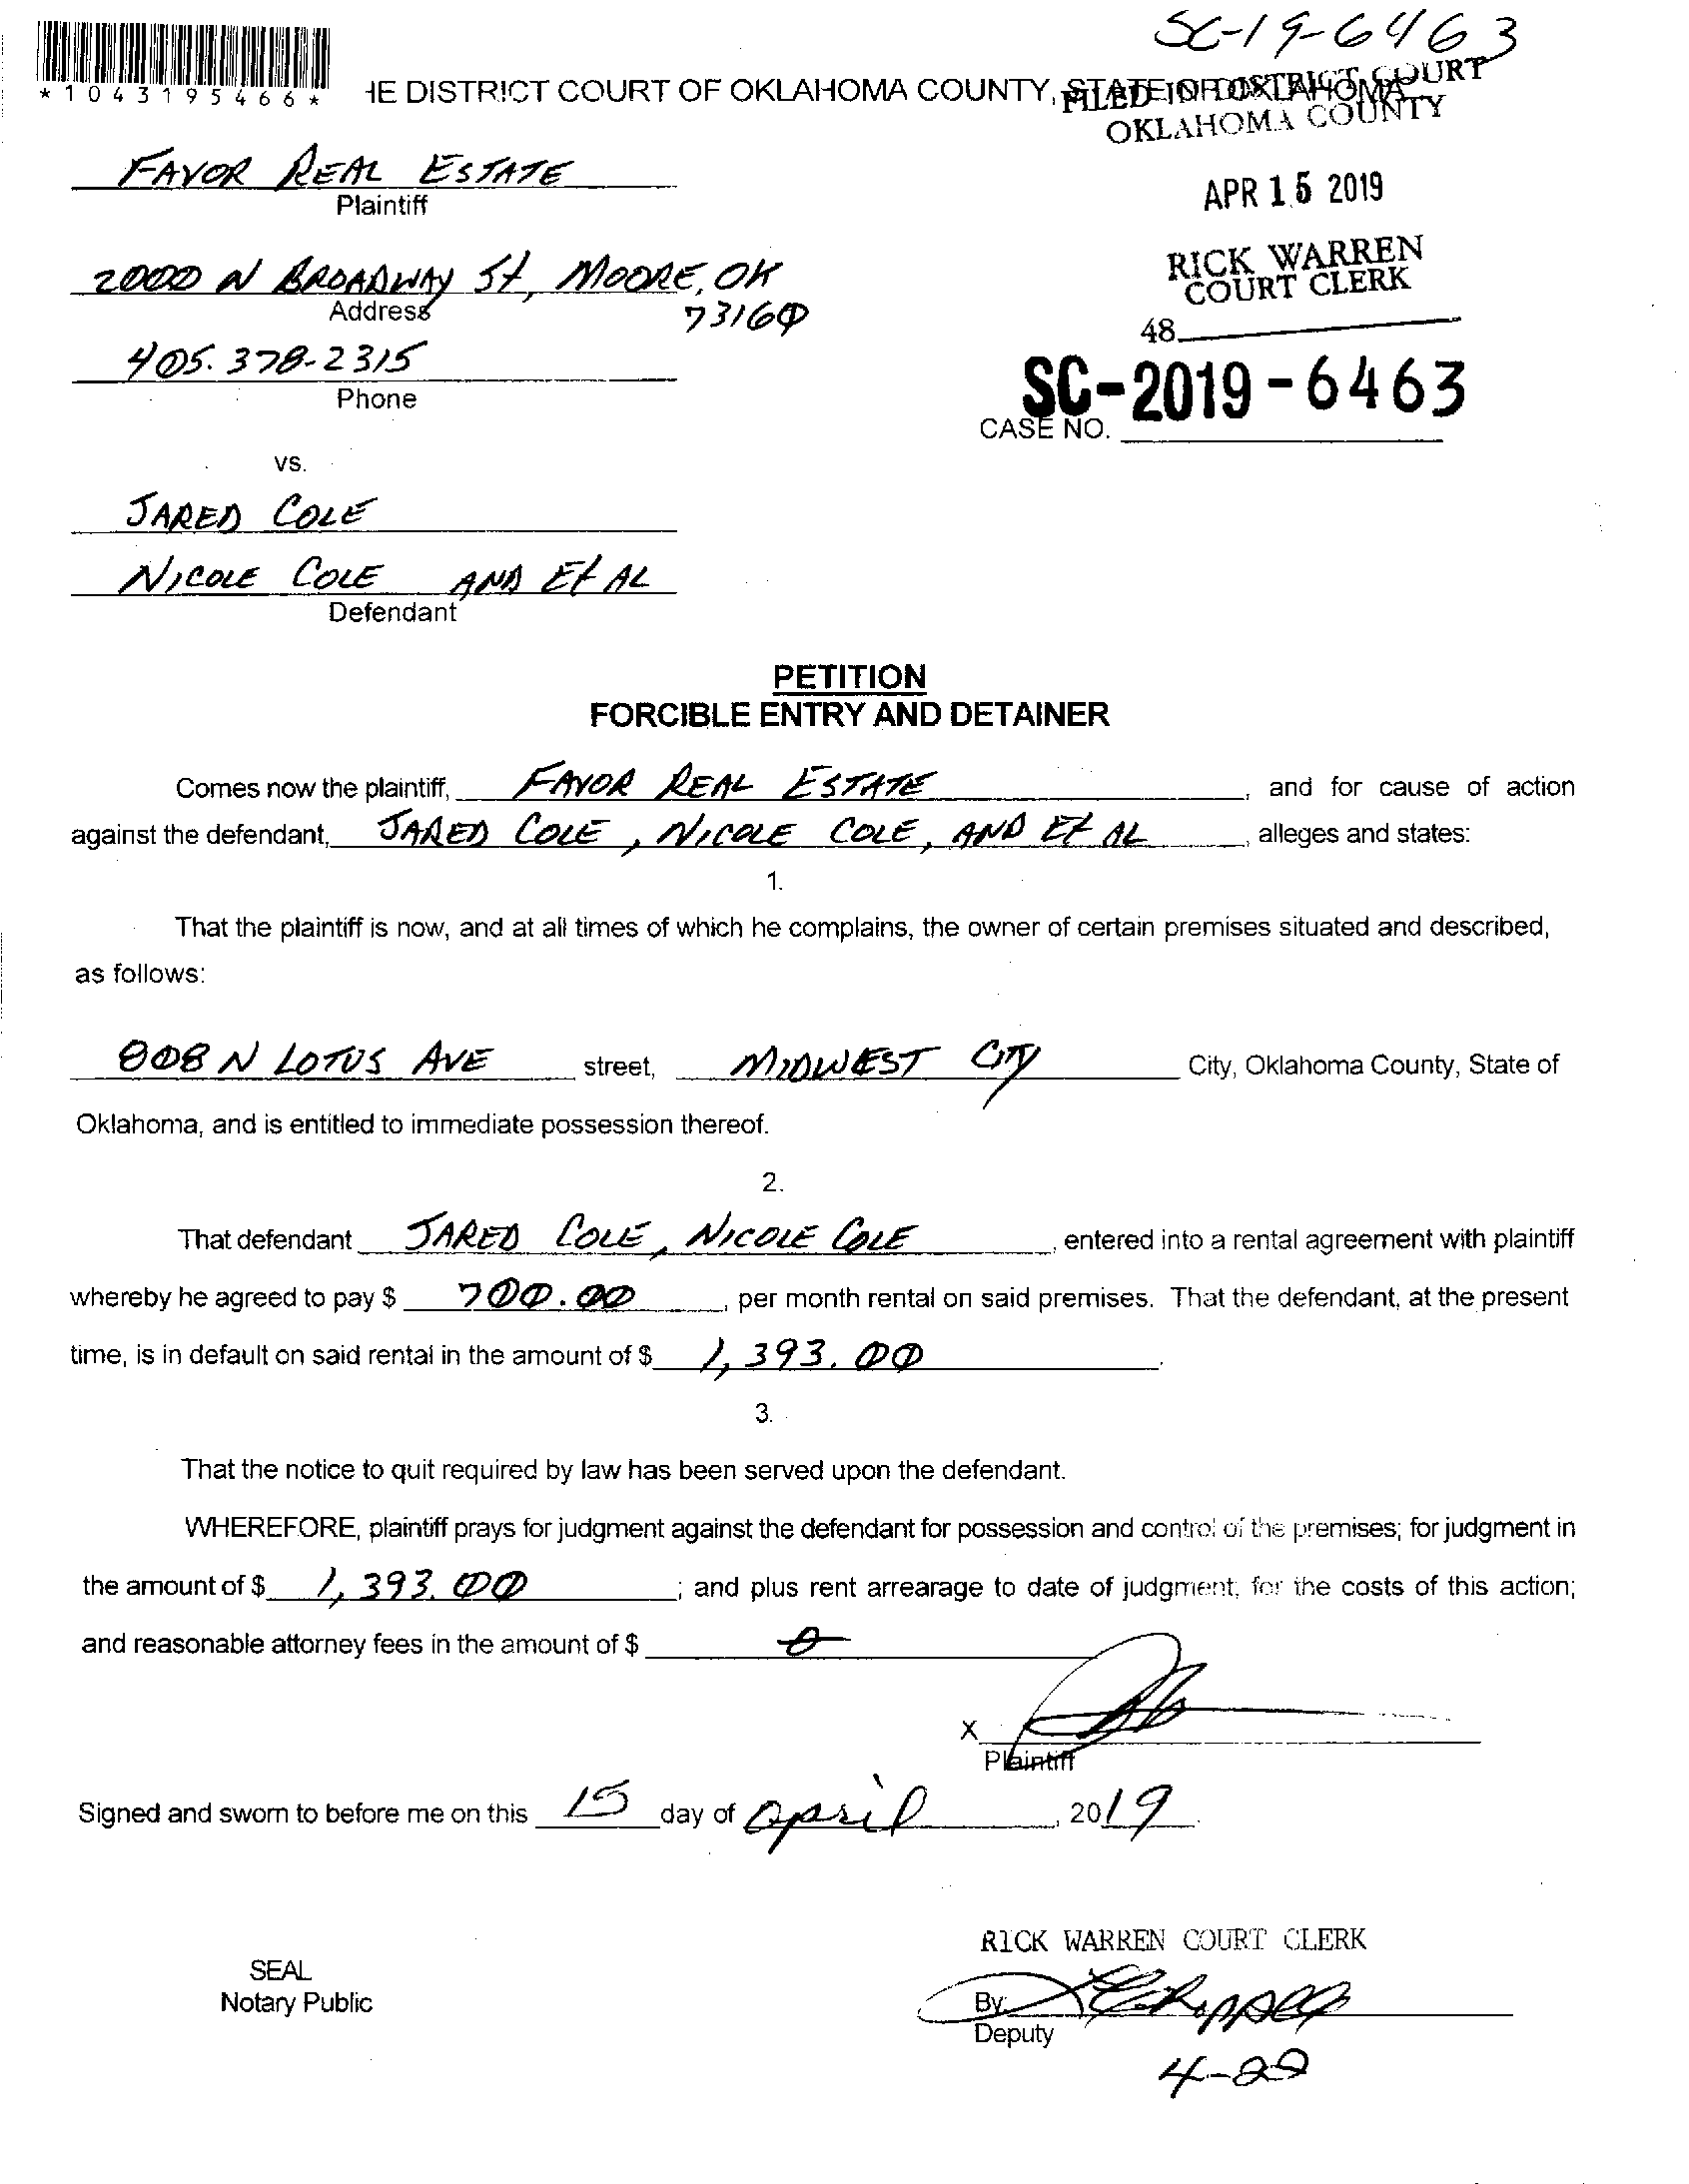 SC-19-6463
*1043195466*
HE DISTRICT COURT OF OKLAHOMA COUNTY, STATE OF OKLAHOMA
FILED IN DISTRICT COURT
OKLAHOMA COUNTY
FAVOR REAL ESTATE
Plaintiff
APR 15 2019
RICK WARREN
COURT CLERK
2000 N BROADWAY St, MOORE, OK
Address 73160
48
405. 378-2315
Phone
SC-2019-6463
CASE NO.
vs.
JARED COLE
NICOLE COLE AND Et AL
Defendant
PETITION
FORCIBLE ENTRY AND DETAINER
Comes now the plaintiff, FAVOR REAL ESTATE, and for cause of action
against the defendant, JARED COLE, NICOLE COLE, AND Et AL, alleges and states:
1.
That the plaintiff is now, and at all times of which he complains, the owner of certain premises situated and described,
as follows:
808 N LOTUS AVE street, MIDWEST CITY City, Oklahoma County, State of
Oklahoma, and is entitled to immediate possession thereof.
2.
That defendant JARED COLE, NICOLE COLE, entered into a rental agreement with plaintiff
whereby he agreed to pay $ 700.00, per month rental on said premises. That the defendant, at the present
time, is in default on said rental in the amount of $ 1,393.00.
3.
That the notice to quit required by law has been served upon the defendant.
WHEREFORE, plaintiff prays for judgment against the defendant for possession and control of the premises; for judgment in
the amount of $ 1,393.00; and plus rent arrearage to date of judgment; for the costs of this action;
and reasonable attorney fees in the amount of $ 0
X
Plaintiff
Signed and sworn to before me on this 15 day of April, 2019.
RICK WARREN COURT CLERK
SEAL
Notary Public
By:
Deputy
4-22